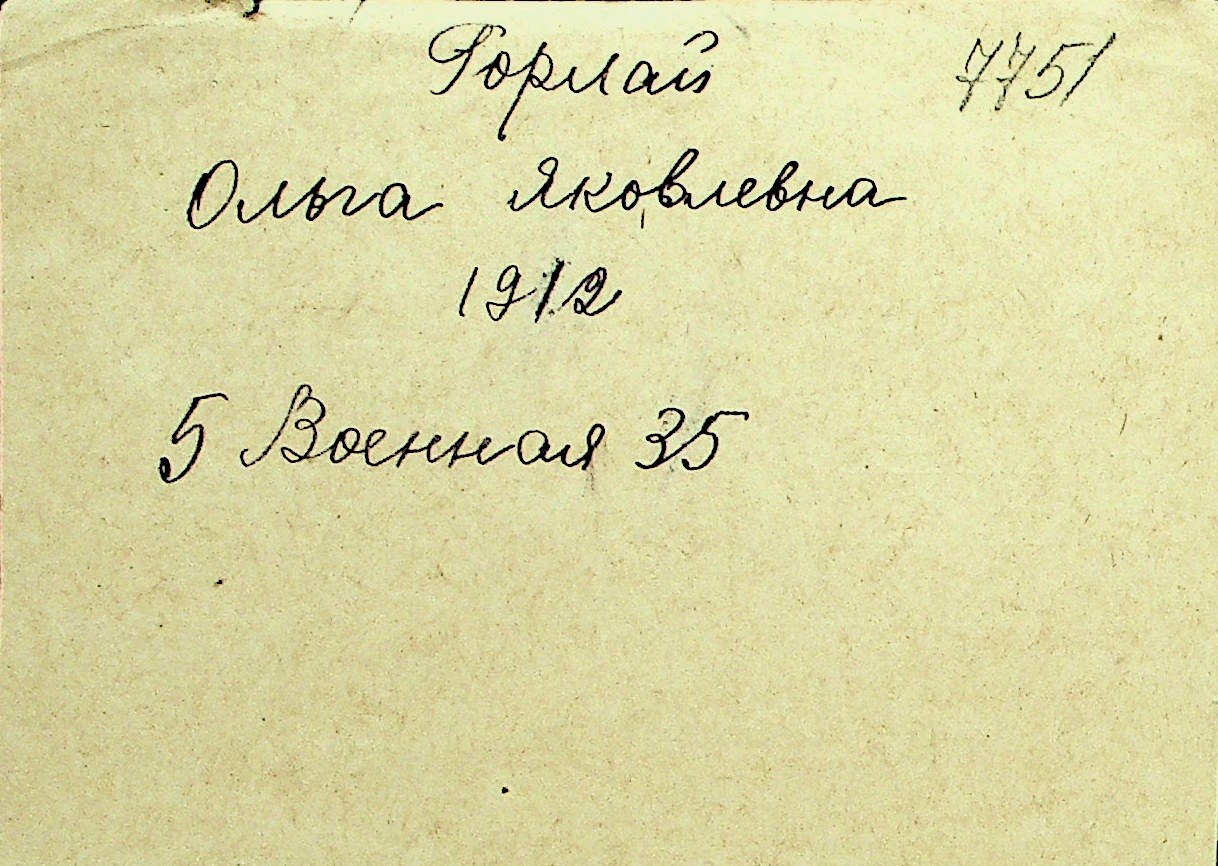 Горлай 7751
Ольга Яковлевна
1912
5 Военная 35